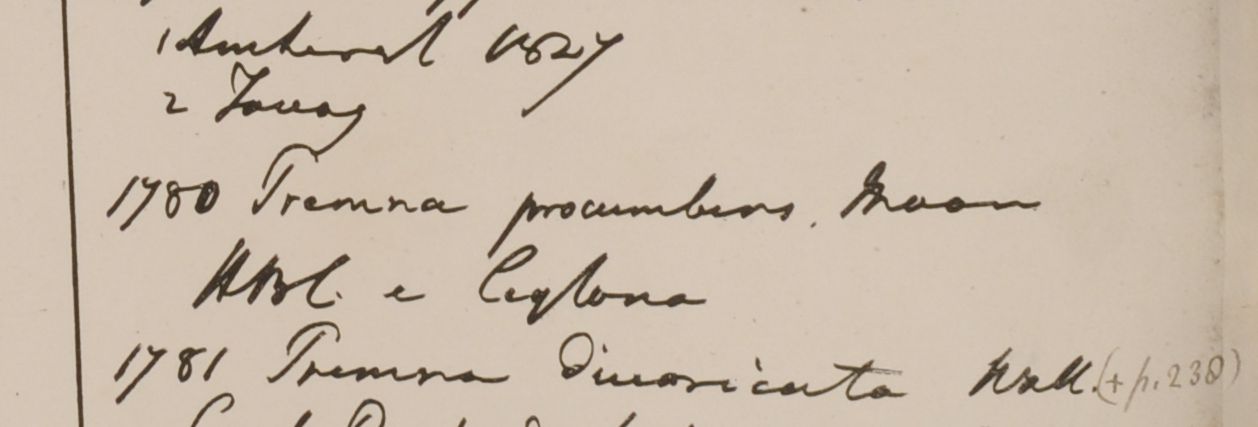 1 Amherst 1827
2 Tavoy
1780 Premna procumbens. Moon
HBC. e Ceylona
1781 Premna divaricata Wall. (+ p. 238)